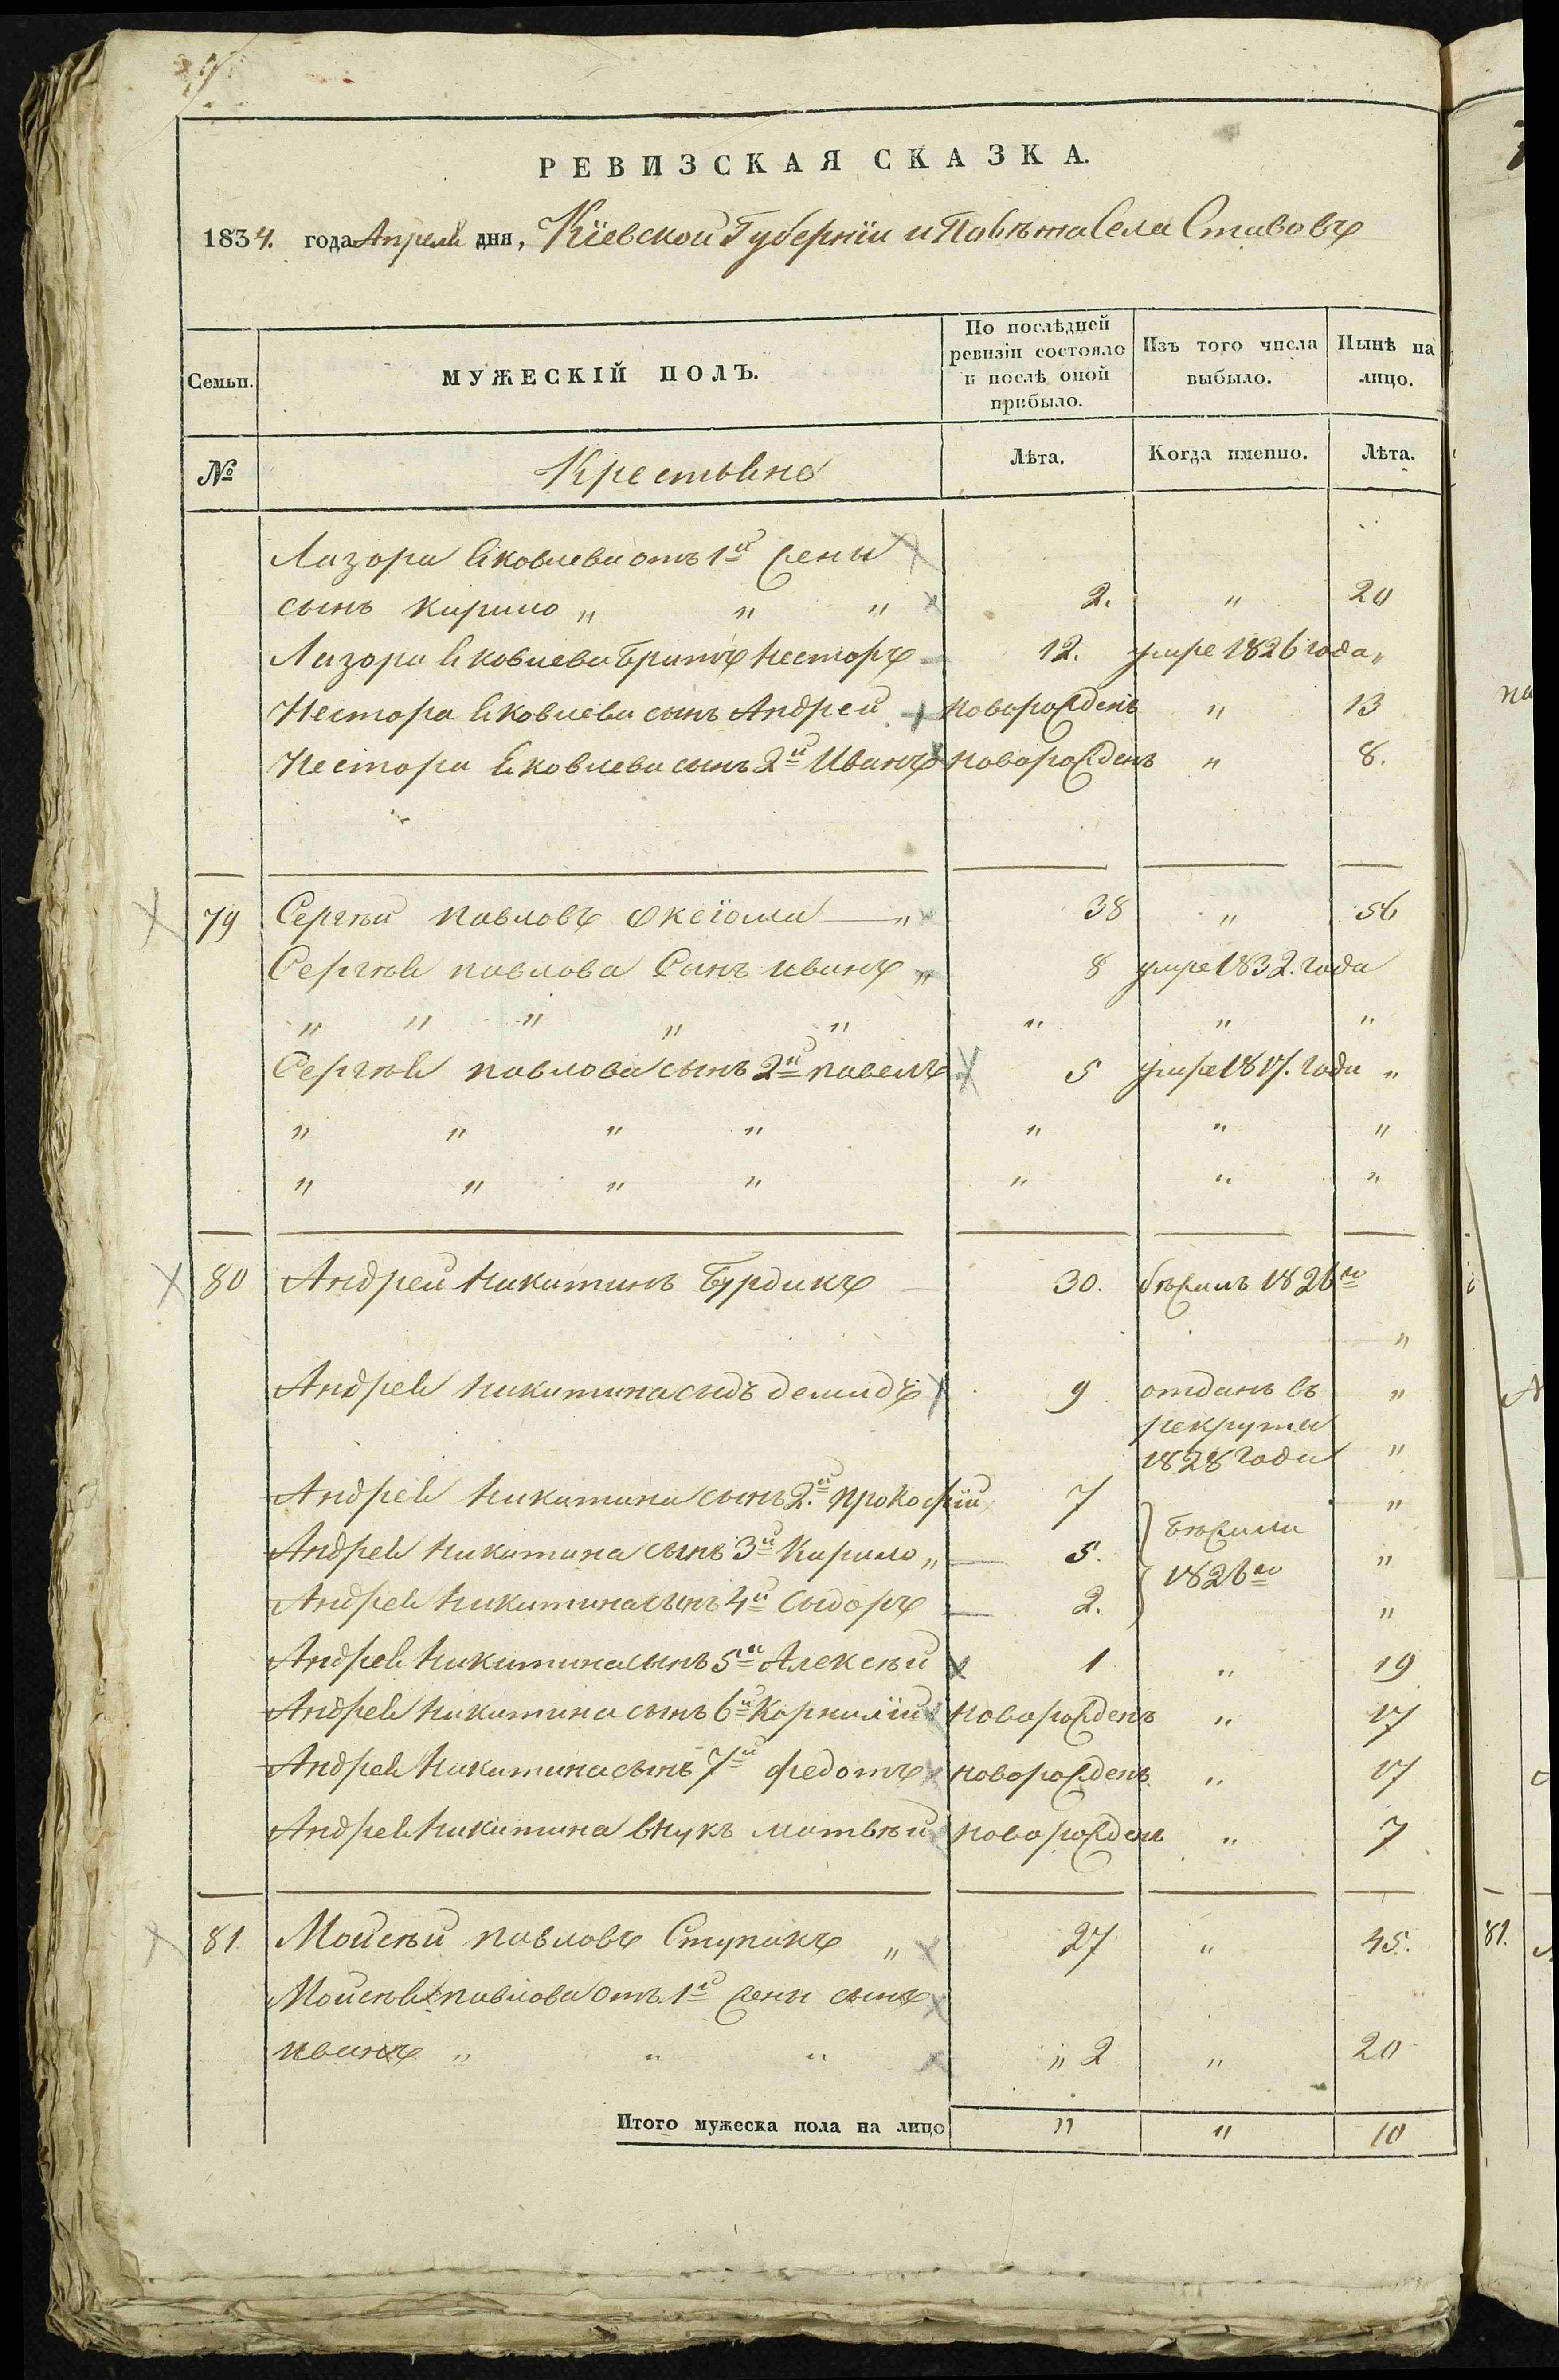 РЕВИЗСКАЯ СКАЗКА.
1834. года Апреля дня, Кіевской Губерніи и Повѣта Села Ставовъ
Семьи. МУЖЕСКІЙ ПОЛЪ. По послѣдней ревизіи состояло и послѣ оной прибыло. Изъ того числа выбыло. Нынѣ на лицо.
№ Крестьяне Лѣта. Когда именно. Лѣта.
Лазора Яковлева отъ 1й жены
сынъ Кирило " " " 2. " 20
Лазора Яковлева Братъ Несторъ 12. умре 1826 года "
Нестора Яковлева сынъ Андрей новорожденъ " 13
Нестора Яковлева сынъ 2й Иванъ новорожденъ " 8.
79 Сергѣй Павловъ " 38 " 56
Сергѣя Павлова Сынъ Иванъ " 8 умре 1832. года
" " " " " " " "
Сергѣя Павлова сынъ 2й Павелъ 5 умре 1817. года "
" " " " " " "
" " " " " " "
80 Андрей Никитинъ Бурдикъ 30. бѣжалъ 1826го
"
Андрея Никитина сынъ Демидъ 9 отданъ въ "
рекруты
1828 года "
Андрея Никитина сынъ 2.й Прокофій 7 "
Андрея Никитина сынъ 3й Кирило " 5. } Бѣжали "
1826го
Андрея Никитина сынъ 4й Сидоръ 2. "
Андрея Никитина сынъ 5й Алексѣй 1 " 19
Андрея Никитина сынъ 6й Корнилій новорожденъ " 17
Андрея Никитина сынъ 7й Федотъ новорожденъ " 17
Андрея Никитина внукъ Матвѣй новорожденъ " 7
81. Мойсѣй Павловъ Ступакъ " 27 " 45.
Мойсѣя Павлова отъ 1й жены сынъ
Иванъ " " " " 2 " 20
Итого мужеска пола на лицо " " 10
81.